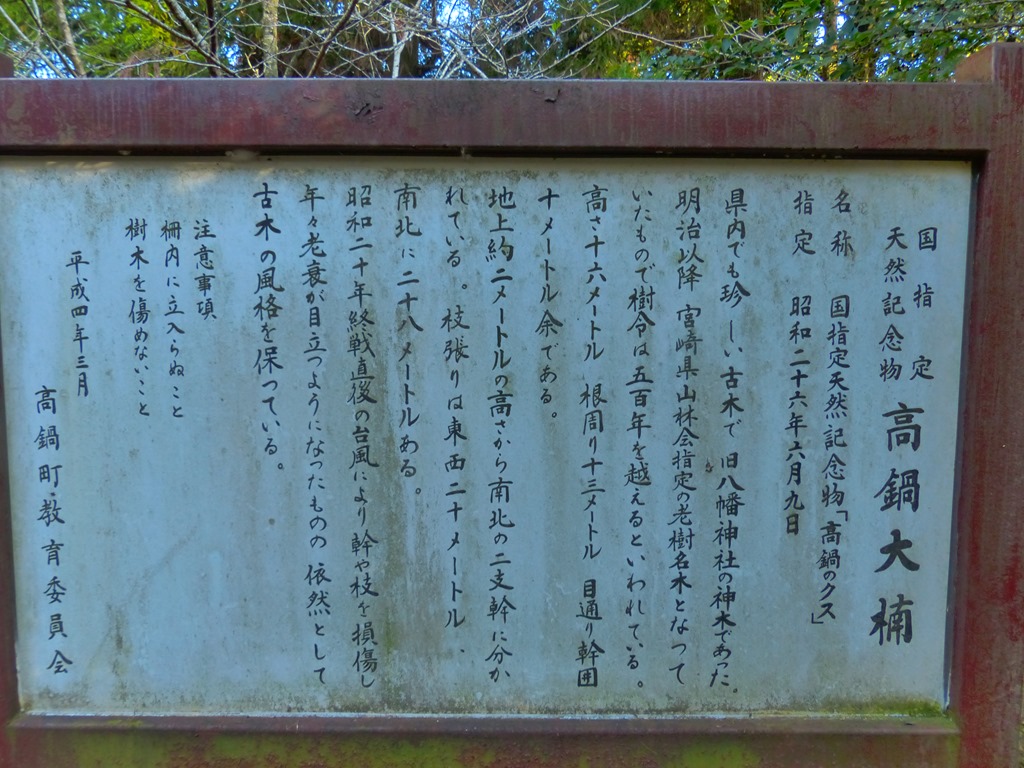 国指定
天然記念物
高鍋大楠
名称　国指定天然記念物「高鍋のクス」
指定　昭和二十六年六月九日
県内でも珍しい古木で 旧八幡神社の神木であった。
明治以降 宮崎県山林会指定の老樹名木となって
いたもので樹令は五百年を越えるといわれている。
高さ十六メートル 根周り十三メートル 目通り幹囲
十メートル余である。
地上約二メートルの高さから南北の二支幹に分か
れている。枝張りは東西二十メートル、
南北に二十八メートルある。
昭和二十年終戦直後の台風により幹や枝を損傷し
年々老衰が目立つようになったものの 依然として
古木の風格を保っている。
注意事項
柵内に立入らぬこと
樹木を傷めないこと
平成四年三月
高鍋町教育委員会